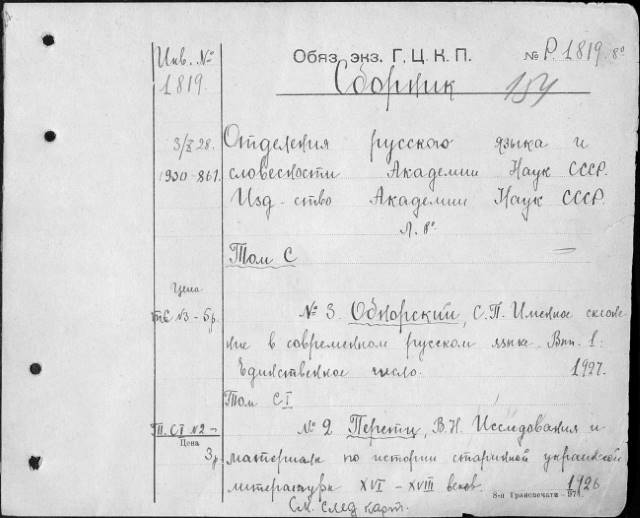 Инв. № Обяз. экз. Г. Ц. К. П. № Р. 1819. 8°
1819. Сборник 154
3/X 28. Отделения русского языка и
1930-861. словесности Академии Наук СССР.
Изд-ство Академии Наук СССР.
Л. 8°
Том C
Цена
т C №3 - 5р. № 3. Обнорский, С.П. Именное склоне
ние в современном русском языке. Вып. 1.
Единственное число. 1927.
Том CI
Т. CI №2 - № 2 Перетц, В.Н. Исследования и
Цена
3р. материалы по истории старинной украинской
литературы XVI - XVIII веков. 1926
8-я Транспечати
См. след. карт.